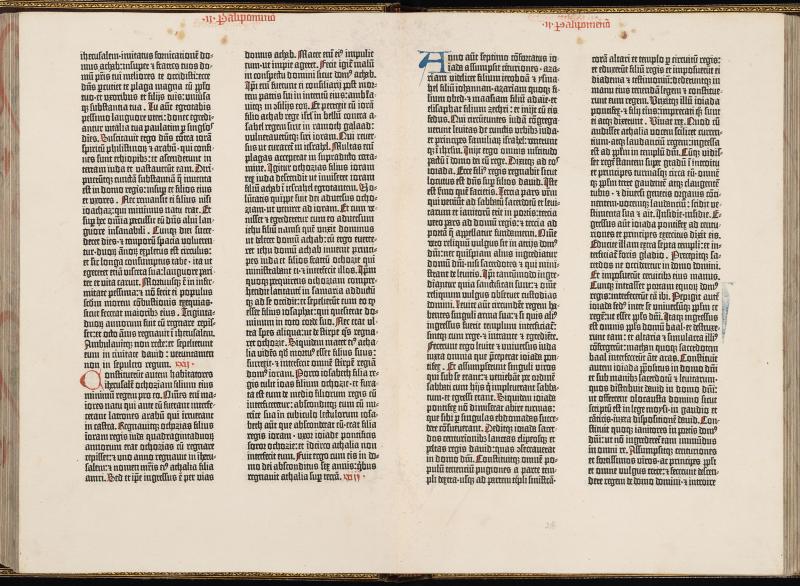 ·II· Palipominō
iherusalem·imitatus fornicationē do-
mus achab·insuper et fratres tuos do-
mū pr̄is tui meliores te occidisti:ecce
dn̄s percutiet te plaga magna cū pp̄lo
tuo·et uxoribus et filijs tuis:universa
q; substantia tua. Tu aut̄ egrotabis
pessimo languore uteri: donec egredi-
antur vitalia tua paulatim p singlos
dies. Suscitavit ergo dn̄s contra iorā
spiritū philistinoꝝ et arabū·qui confi-
nes sunt ethiopibꝰ:et ascenderunt in
terram iuda et vastaverūt eam. Diri-
puerūtq; cunctā substantiā q̄ inventa
est in domo regis:insup et filios eius
et uxores. Nec remansit ei filius nisi
ioachaz·qui minimus natu erat. Et
sup hec om̄ia percussit eū dn̄s alvi lan-
guore insanabili. Cumq; diei succe-
deret dies·et temporū spacia volveren-
tur·duoꝝ annoꝝ expletus est circulus:
et sic longa consumptus tabe·ita ut
egereret etiā viscera sua:languore pari-
ter et vita caruit. Mortuusq; ē in infir-
mitate pessima:et nō fecit ei populus
scd̄m morem cōbustionis exequias·
sicut fecerat maioribꝰ eius. Triginta-
duoꝝ annorum fuit cū regnare cepis-
set:et octo annis regnavit in iherusalem.
Ambulavitq; non recte:et sepelierunt
eum in civitate david: verumtamen
non in sepulcro regum. XXII
Constituerūt autem habitatores
iherusalē ochoziam filium eius
minimū regem pro eo. Om̄es em̄ ma-
iores natu qui ante eū fuerant interfe-
cerant latrones arabū qui irruerant
in castra. Regnavitq; ochozias filius
ioram regis iuda·quadragintaduoꝝ
annorum erat ochozias cū regnare
cepisset:et uno anno regnavit in iheru-
salem:et nomen mr̄is eiꝰ athalia filia
amri. Sed et ipse ingressus ē per vias
domus achab. Mater em̄ eiꝰ impulit
eum·ut impie ageret. Fecit igit̄ malū
in conspectu domini sicut domꝰ achab.
Ipi em̄ fuerunt ei consiliarij post mor-
tem patris sui in interitū eius:ambla-
vitq; in ꝯsilijs eoꝝ. Et perrexit cū iorā
filio achab rege isrl̄ in bellū contra a-
sahel regem sirie in ramoth galaad:
vulneraveruntq; siri ioram. Qui rever-
sus ut curaret̄ in iesrahel. Multas em̄
plagas acceperat in supradicto certa-
mine. Igitur ochozias filius ioram
rex iuda descendit ut inviseret ioram
filiū achab ī iesrahel egrotantem. Vo-
lūtatis quippe fuit dei adversus ocho-
ziam·ut veniret ad ioram. Et cum ve-
nisset et egrederetur cum eo adversum
iehu filiū namsi quē unxit dominus
ut deleret domū achab:cū ergo everte-
ret iehu domū achab invenit princi-
pes iuda et filios fratrū ochozie qui
ministrabant ei·et interfecit illos. Ipm̄
quoq; perquirens ochoziam compre-
hendit latitantē in samaria adductū-
q; ad se occidit:et sepelierūt eum eo ꝙ
esset filius iosaphat: qui quesierat do-
minum in toto corde suo. Nec erat ul-
tra spes aliqua:ut de stirpe q̄s regna-
ret ochozie. Siquidem mater eiꝰ atha-
lia vidēs ꝙ mortuꝰ esset filius suus:
surrexit·et interfecit omnē stirpē regiā
domꝰ ioram. Porro iosabeth filia re-
gis tulit ioas filium ochozie·et fura-
ta est eum de medio filiorum regis cū
interficerentur:absconditq; eum cū nu-
trice sua in cubiculo lectulorum iosa-
beth aūt que absconderat eū·erat filia
regis ioram·uxor ioiade pontificis
soror ochozie:et idcirco athalia non
interfecit eum. Fuit ergo cum eis in do-
mo dei absconditus sex annis:q̄bus
regnavit athalia sup terrā. XXIII
·II· Palipomenō
Anno aut̄ septimo cōfortatus io-
iada assumpsit cēturiones·aza-
riam videlicet filium ieroboā et ysma-
hel filiū iohannan·azariam quoq; fi-
lium obed·et maasiam filiū adaie·et
elisaphat filium zechri: et iniit cū eis
fedus. Qui circueuntes iudā cōgrega-
verunt levitas de cunctis urbibꝰ iuda·
et principes familiaꝝ israhel:venerunt
q; ī ihrl̄m. Iniit ergo omnis multitudo
pactū ī domo dei cū rege. Dixitq; ad eos
ioiada. Ecce filiꝰ regis regnabit sicut
locutus est dn̄s sup filios david. Iste
est sermo quē facietis. Tercia pars vr̄m
qui veniūt ad sabbatū sacerdotū et levi-
tarum et ianitorū erit in portis:tercia
vero pars ad domū regis:et tercia ad
portā q̄ appellatur fundamenti. Om̄e
vero reliquū vulgus sit in atrijs domꝰ
dn̄i:nec quispiam alius ingrediatur
domū dn̄i·nisi sacerdotes et qui mini-
strant de levitis. Ipi tantūmodo ingre-
diantur quia sanctificati sunt: et om̄e
reliquum vulgus observet custodias
domini. Levite aūt circundent regem ha-
bentes singuli arma sua:et si quis aliꝰ
ingressus fuerit templum interficiat̄:
sintq; cum rege·et intrante et egrediēte.
Fecerunt ergo levite et universus iuda
iuxta omnia que preceperat ioiada pon-
tifex. Et assumpserunt singuli viros
qui sub se erant:et veniebāt per ordinē
sabbati cum hijs q̄ impleverant sabba-
tum·et egressi erant. Siquidem ioiada
pontifex nō dimiserat abire turmas:
que sibi p singulas ebdomadas succe-
dere cōsueverant. Deditq; ioiada sacer-
dos centurionibꝰ lanceas clipeosq; et
peltas regis david:quas ꝯsecraverat
in domo dn̄i. Constituitq; omnē po-
pulū tenenciū pugiones a parte tem-
pli dextra·usq; ad partem tēpli sinistrā
corā altari et templo p circuitū regis:
et eduxerūt filiū regis et imposuerūt ei
diadema et testimoniū:dederuntq; in
manu eius tenendā legem et constitue-
runt eum regem. Unxitq; illū ioiada
pontifex·et filij eius:imprecatiq; sunt
ei atq; dixerunt. Vivat rex. Quod cū
audisset athalia vocem scilicet curren-
cium·atq; laudancium regem:ingressa
est ad pp̄lm in templū dn̄i. Cūq; vidis-
set regē stantem super gradū ī introitu
et principes turmasq; circa eū·omnē
q; pp̄lm terre gaudentē atq; clangentē
tubis·et diversi generis organis cōci-
nentem·vocemq; laudanciū:scidit ve-
stimenta sua et ait. Insidie·insidie. E-
gressus aūt ioiada pontifex ad cētu-
riones et principes exercitus dixit eis.
Educite illam extra septa templi:et in-
terficiat̄ foris gladio. Precepitq; sa-
cerdos ne occideretur in domo domini.
Et imposuerūt cervicibꝰ eius manus.
Cumq; intrasset portam equoꝝ domꝰ
regis:interfecerūt eā ibi. Pepigit aūt
ioiada fedꝰ inter se universūq; pp̄lm et
regē:ut esset pp̄ls dn̄i. Itaq; ingressus
est omnis pp̄ls domū baal·et destruxe-
runt eam:et altaria et simulacra illiꝰ
cōfregerūt:mathan quoq; sacerdotem
baal interfecerūt ante aras. Constituit
autem ioiada p̄positos in domo dn̄i
et sub manibꝰ sacerdotū et levitarum·
quos distribuit david in domo dn̄i:
ut offerrent olocausta domino sicut
scriptū est in lege moysi·in gaudio et
cāticis·iuxta dispositionē david. Con-
stituit quoq; ianitores in portis domꝰ
dn̄i:ut nō ingrederet̄ eam immūdus
in omni re. Assumpsitq; centuriones
et fortissimos viros·ac principes pp̄li
et omne vulgus terre:et fecerunt descen-
dere regem de domo domini·et introire